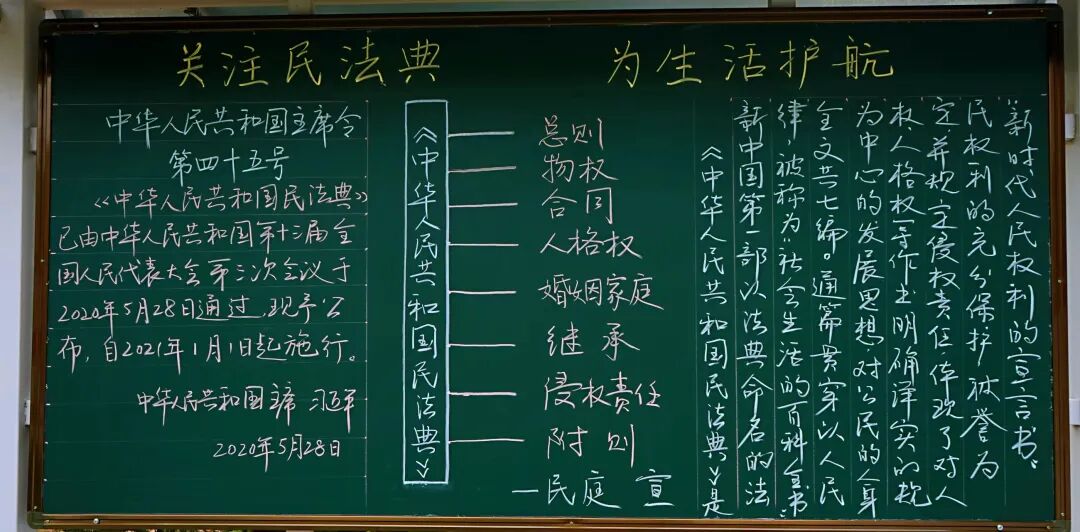 关注民法典 为生活护航
中华人民共和国主席令
第四十五号
《中华人民共和国民法典》
已由中华人民共和国第十三届全
国人民代表大会第三次会议于
2020年5月28日通过,现予公
布,自2021年1月1日起施行。
中华人民共和国主席 习近平
2020年5月28日
《中华人民共和国民法典》
总则
物权
合同
人格权
婚姻家庭
继承
侵权责任
附则
一民庭 宣
《中华人民共和国民法典》是
新中国第一部以法典命名的法
律,被称为“社会生活的百科全书”
全文共七编。通篇贯穿以人民
为中心的发展思想,对公民的人身
权、人格权等作出明确详实的规
定并规定侵权责任,体现了对人
民权利的充分保护,被誉为
新时代人民权利的宣言书。